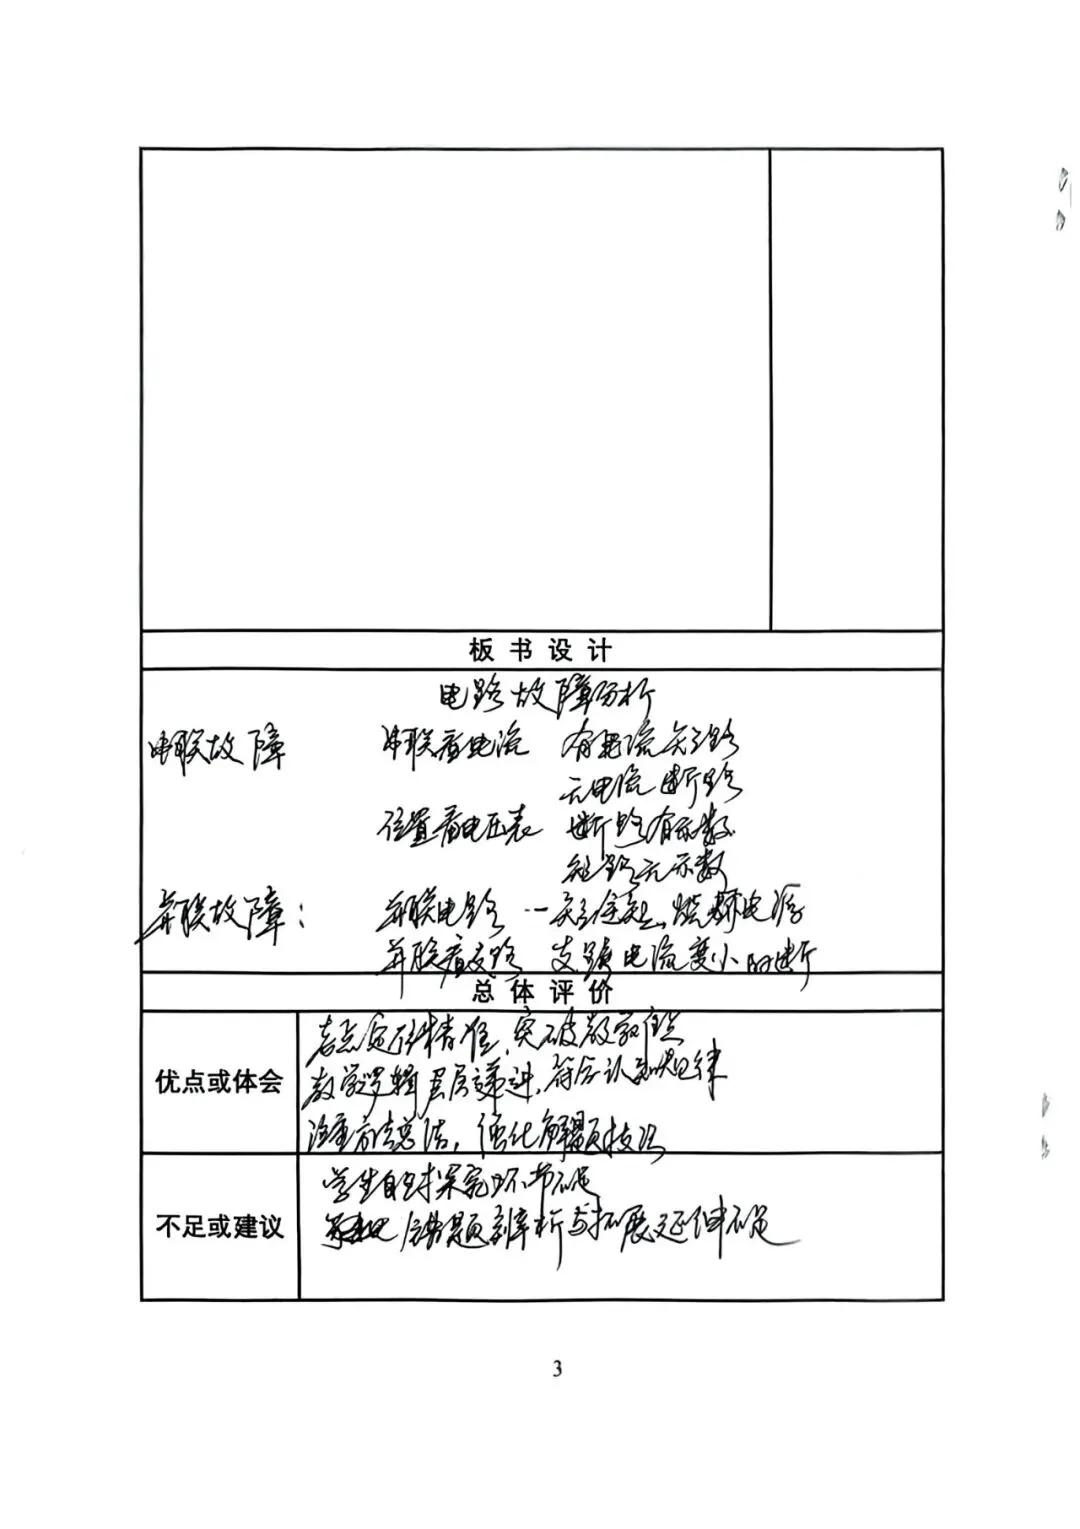 板书设计
电路故障分析
串联故障 串联看电流 有电流短路
无电流断路
位置看电压表 断路有示数
短路无示数
并联故障： 并联电路 一短全短，烧坏电源
并联看支路 支路电流变小的断
总体评价
优点或体会
考点定位精准，突破教学重点
教学逻辑层层递进，符合认知规律
注重方法总结，强化解题技巧
不足或建议
学生自主探究环节不足
错题辨析与拓展延伸不足
3